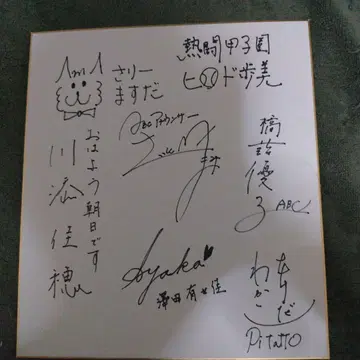 さりー
ますだ
熱闘甲子園
ヒロド歩美
ABCアナウンサー
橋詰優子
ABC
おはよう朝日です
川添佳穂
Ayaka♥
澤田有也佳
わかこ
Pitatto